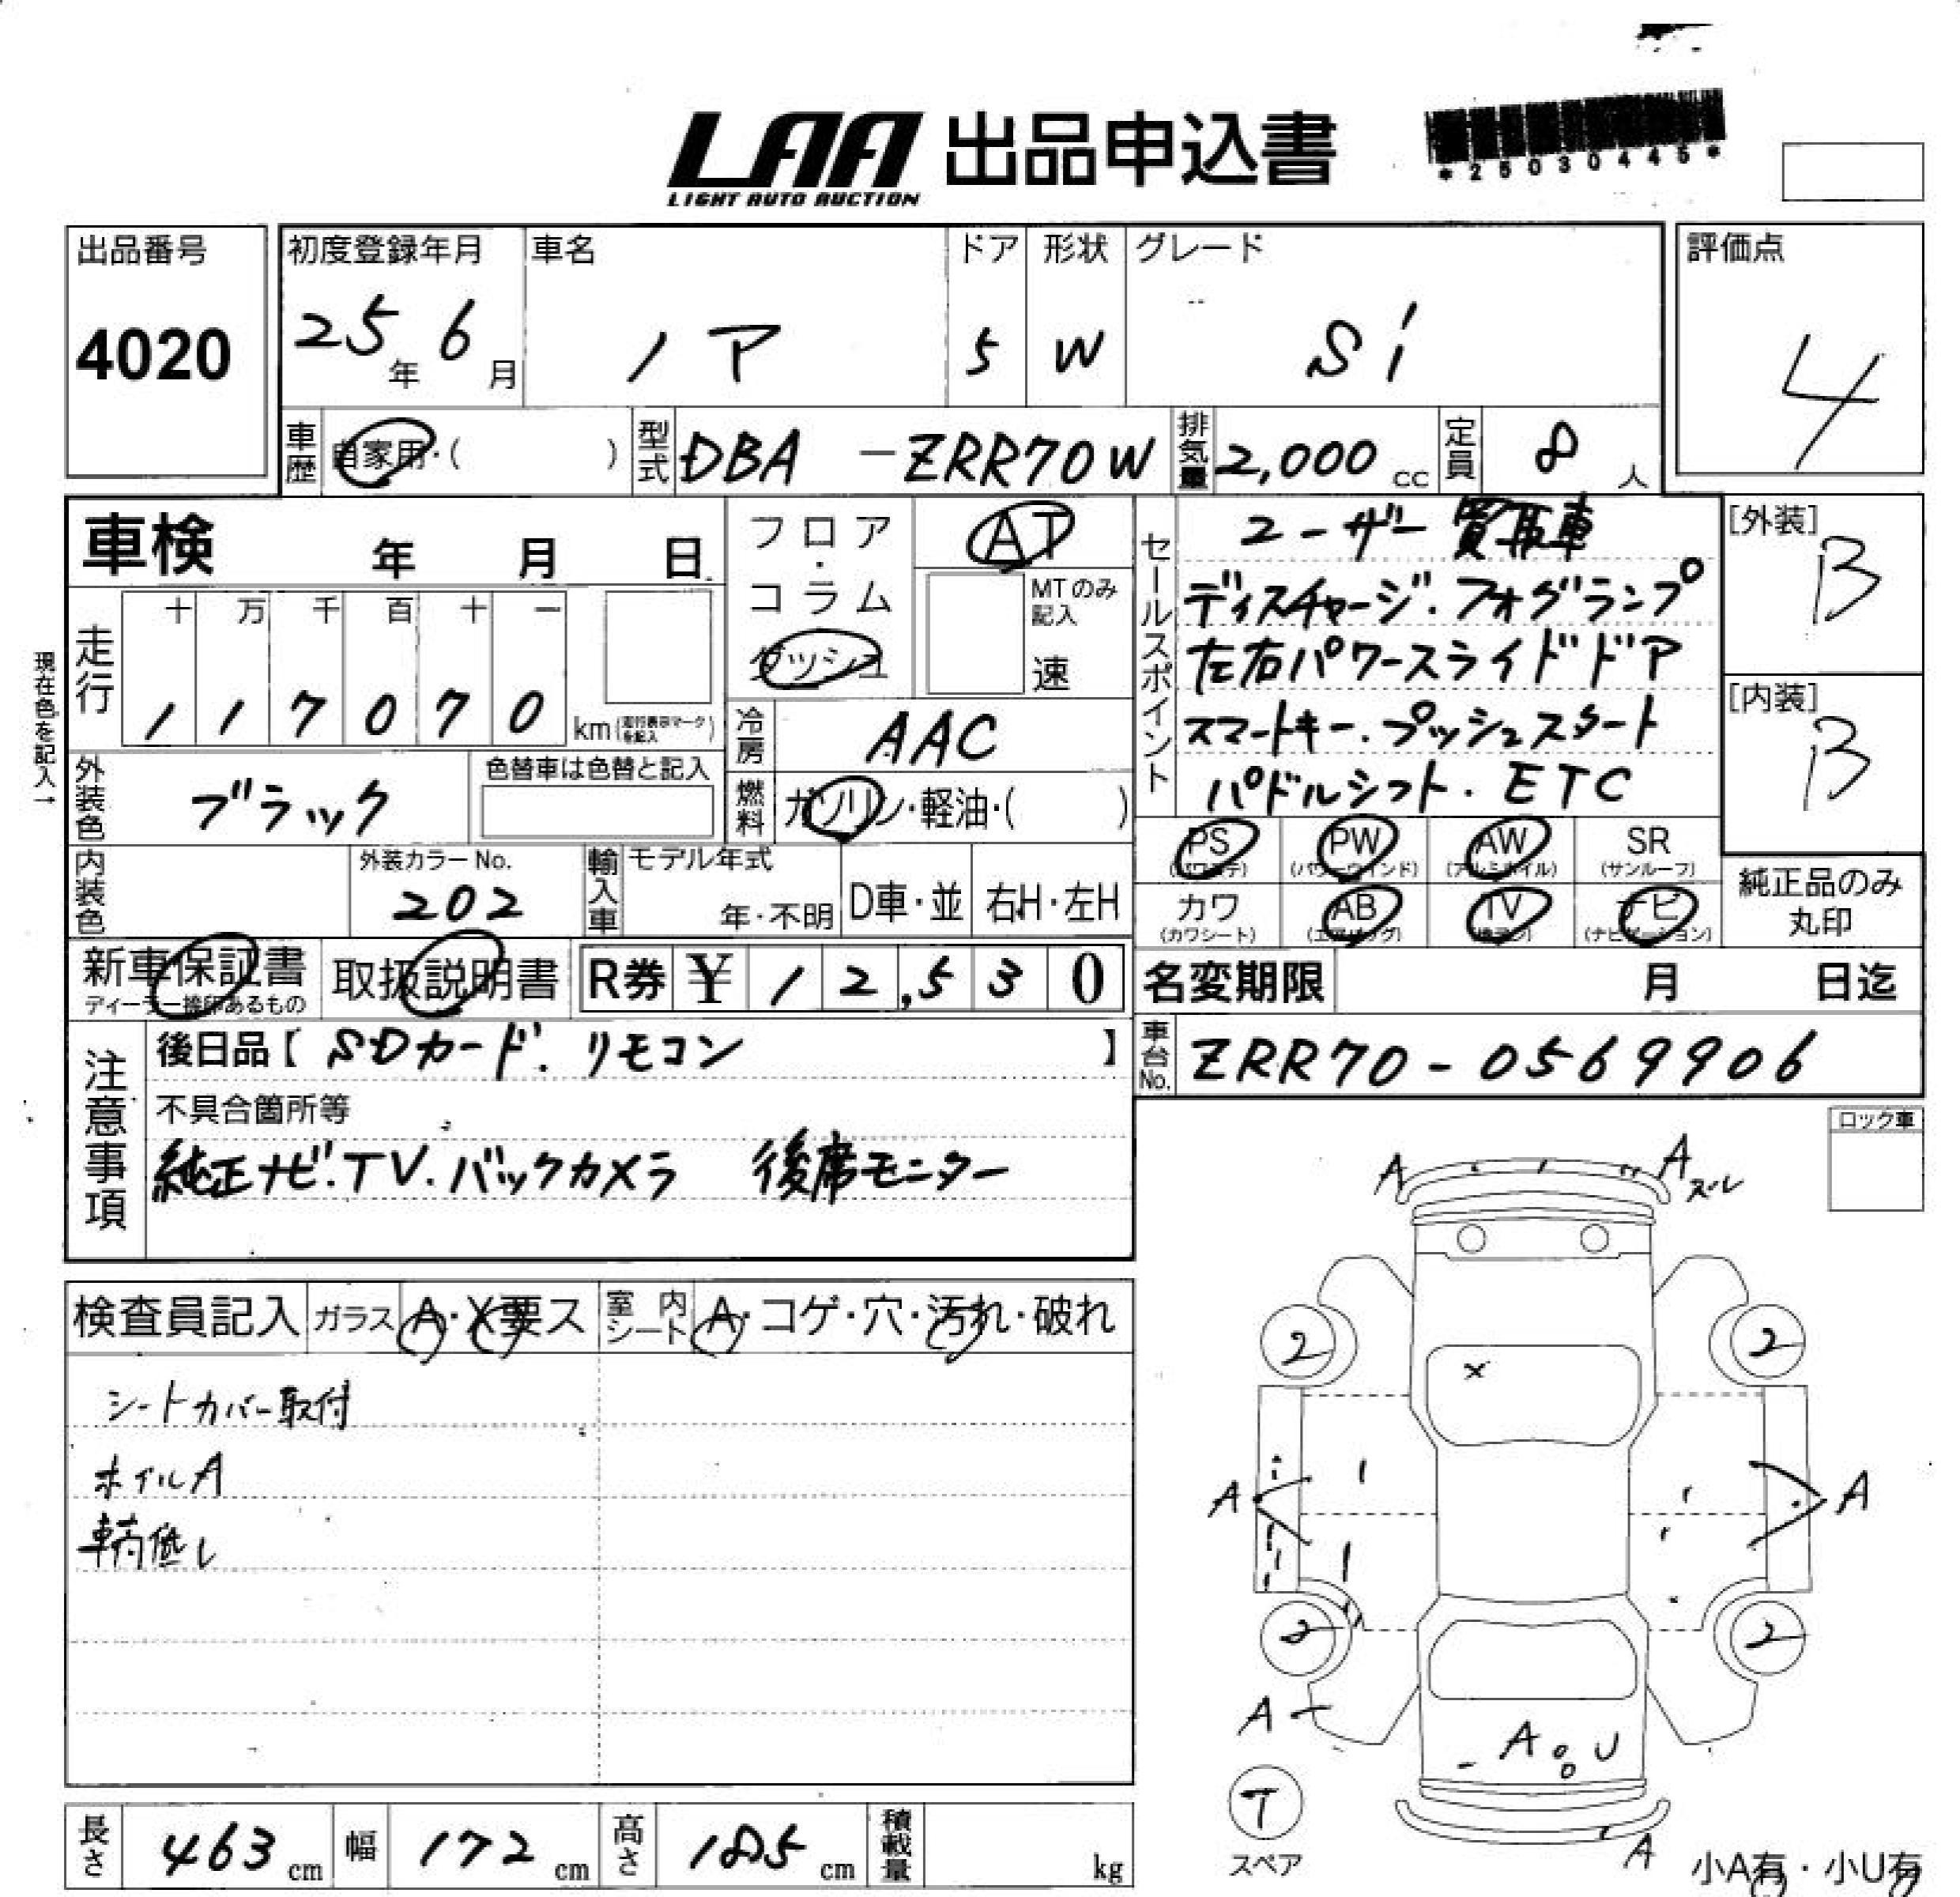 LAA 出品申込書
LIGHT AUTO AUCTION
*25030445*
出品番号
4020
初度登録年月
25年 6月
車名
ノア
ドア
5
形状
W
グレード
Si
評価点
4
車歴 自家用・( )
型式 DBA -ZRR70W
排気量 2,000 cc
定員 8 人
車検 年 月 日
フロア・コラム
ダッシュ
AT
MTのみ記入
速
セールスポイント
ユーザー買取車
ディスチャージ.フォグランプ
左右パワースライドドア
スマートキー.プッシュスタート
パドルシフト.ETC
[外装]
B
[内装]
B
現在色を記入→
走行
十 万 千 百 十 一
1 1 7 0 7 0 km(走行表示マークを記入)
冷房 AAC
外装色 ブラック
色替車は色替と記入
燃料 ガソリン・軽油・( )
PS PW AW SR
(パワステ) (パワーウインド) (アルミホイル) (サンルーフ)
カワ AB TV ナビ
(カワシート) (エアバッグ) (ナビゲーション)
純正品のみ
丸印
内装色
外装カラーNo.
202
輸入車
モデル年式
年・不明
D車・並
右H・左H
新車保証書
ディーラー捺印あるもの
取扱説明書
R券 ¥ 1 2,5 3 0
名変期限 月 日迄
車台No. ZRR70-0569906
注意事項
後日品【 SDカード.リモコン 】
不具合箇所等
純正ナビ.TV.バックカメラ 後席モニター
ロック車
検査員記入
ガラス A・X要ス
室内シート A・コゲ・穴・汚れ・破れ
シートカバー取付
ホイルA
車高低し
A
A
スレ
2
2
X
A
A
2
2
A
A U
T
スペア
A
小A有・小U有
長さ 463 cm
幅 172 cm
高さ 185 cm
積載量 kg